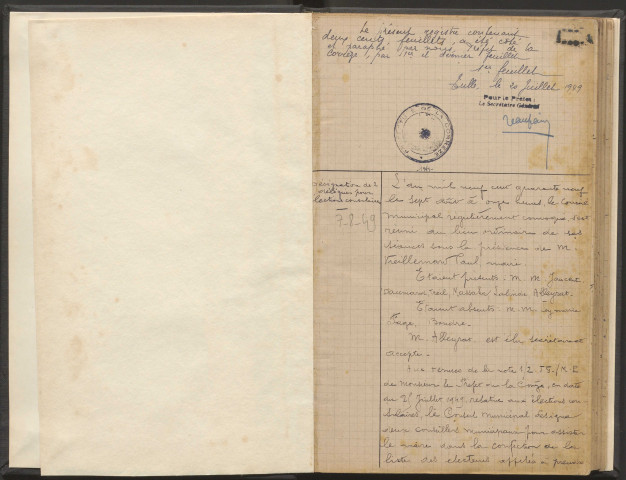 Le présent registre contenant
deux cents feuillets, a été coté
et paraphé par nous, Préfet de la
Corrèze, par 1er et dernier feuillet
1er feuillet
Tulle, le 20 Juillet 1949
Pour le Préfet:
Le Secrétaire Général
Désignation de 2
délégués pour
élections consulaires
7-8-49
L'an mil neuf cent quarante neuf
le sept août à onze heures, le Conseil
Municipal régulièrement convoqué, s'est
réuni au lieu ordinaire de ses
séances sous la présidence de M.
Vieillemard Paul, maire.
Etaient présents: M.M.
Alleyrat.
Etaient absents: M.M.
Fage,
M. Alleyrat est élu secrétaire et
accepte.
Aux termes de la note 1/2
de Monsieur le Préfet de la Corrèze, en date
du 25 Juillet 1949 relative aux élections con-
sulaires, le Conseil Municipal désigne
deux conseillers municipaux pour assister
le maire dans la confection de la
liste des électeurs appelés à prendre